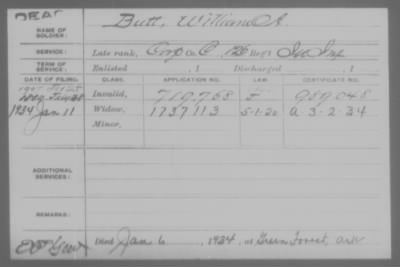 DEAF
NAME OF SOLDIER: Butt, William A.
SERVICE: Late rank, Corp Co. C, 126 Reg't Inf
TERM OF SERVICE: Enlisted , 1 Discharged , 1
DATE OF FILING. CLASS. APPLICATION NO. LAW CERTIFICATE NO.
Invalid, 719,768 989,048
1934 Jan 11 Widow, 1737113 5-1-20 A 3-2-34
Minor,
ADDITIONAL SERVICES:
REMARKS:
Died Jan 6 , 1934, at Green Forest, Ark